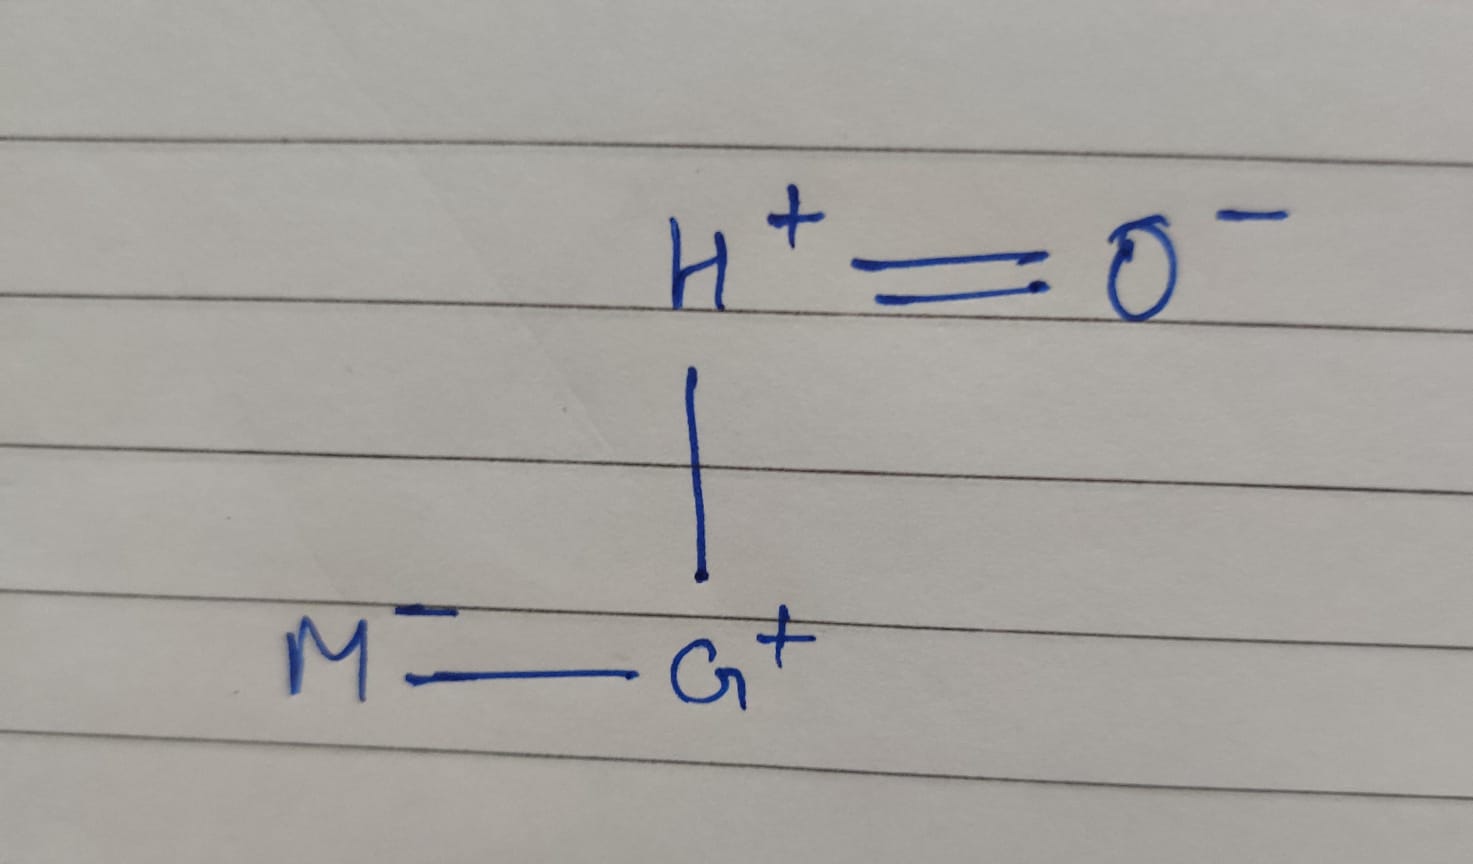 H⁺ = O⁻
|
M⁻ — G⁺